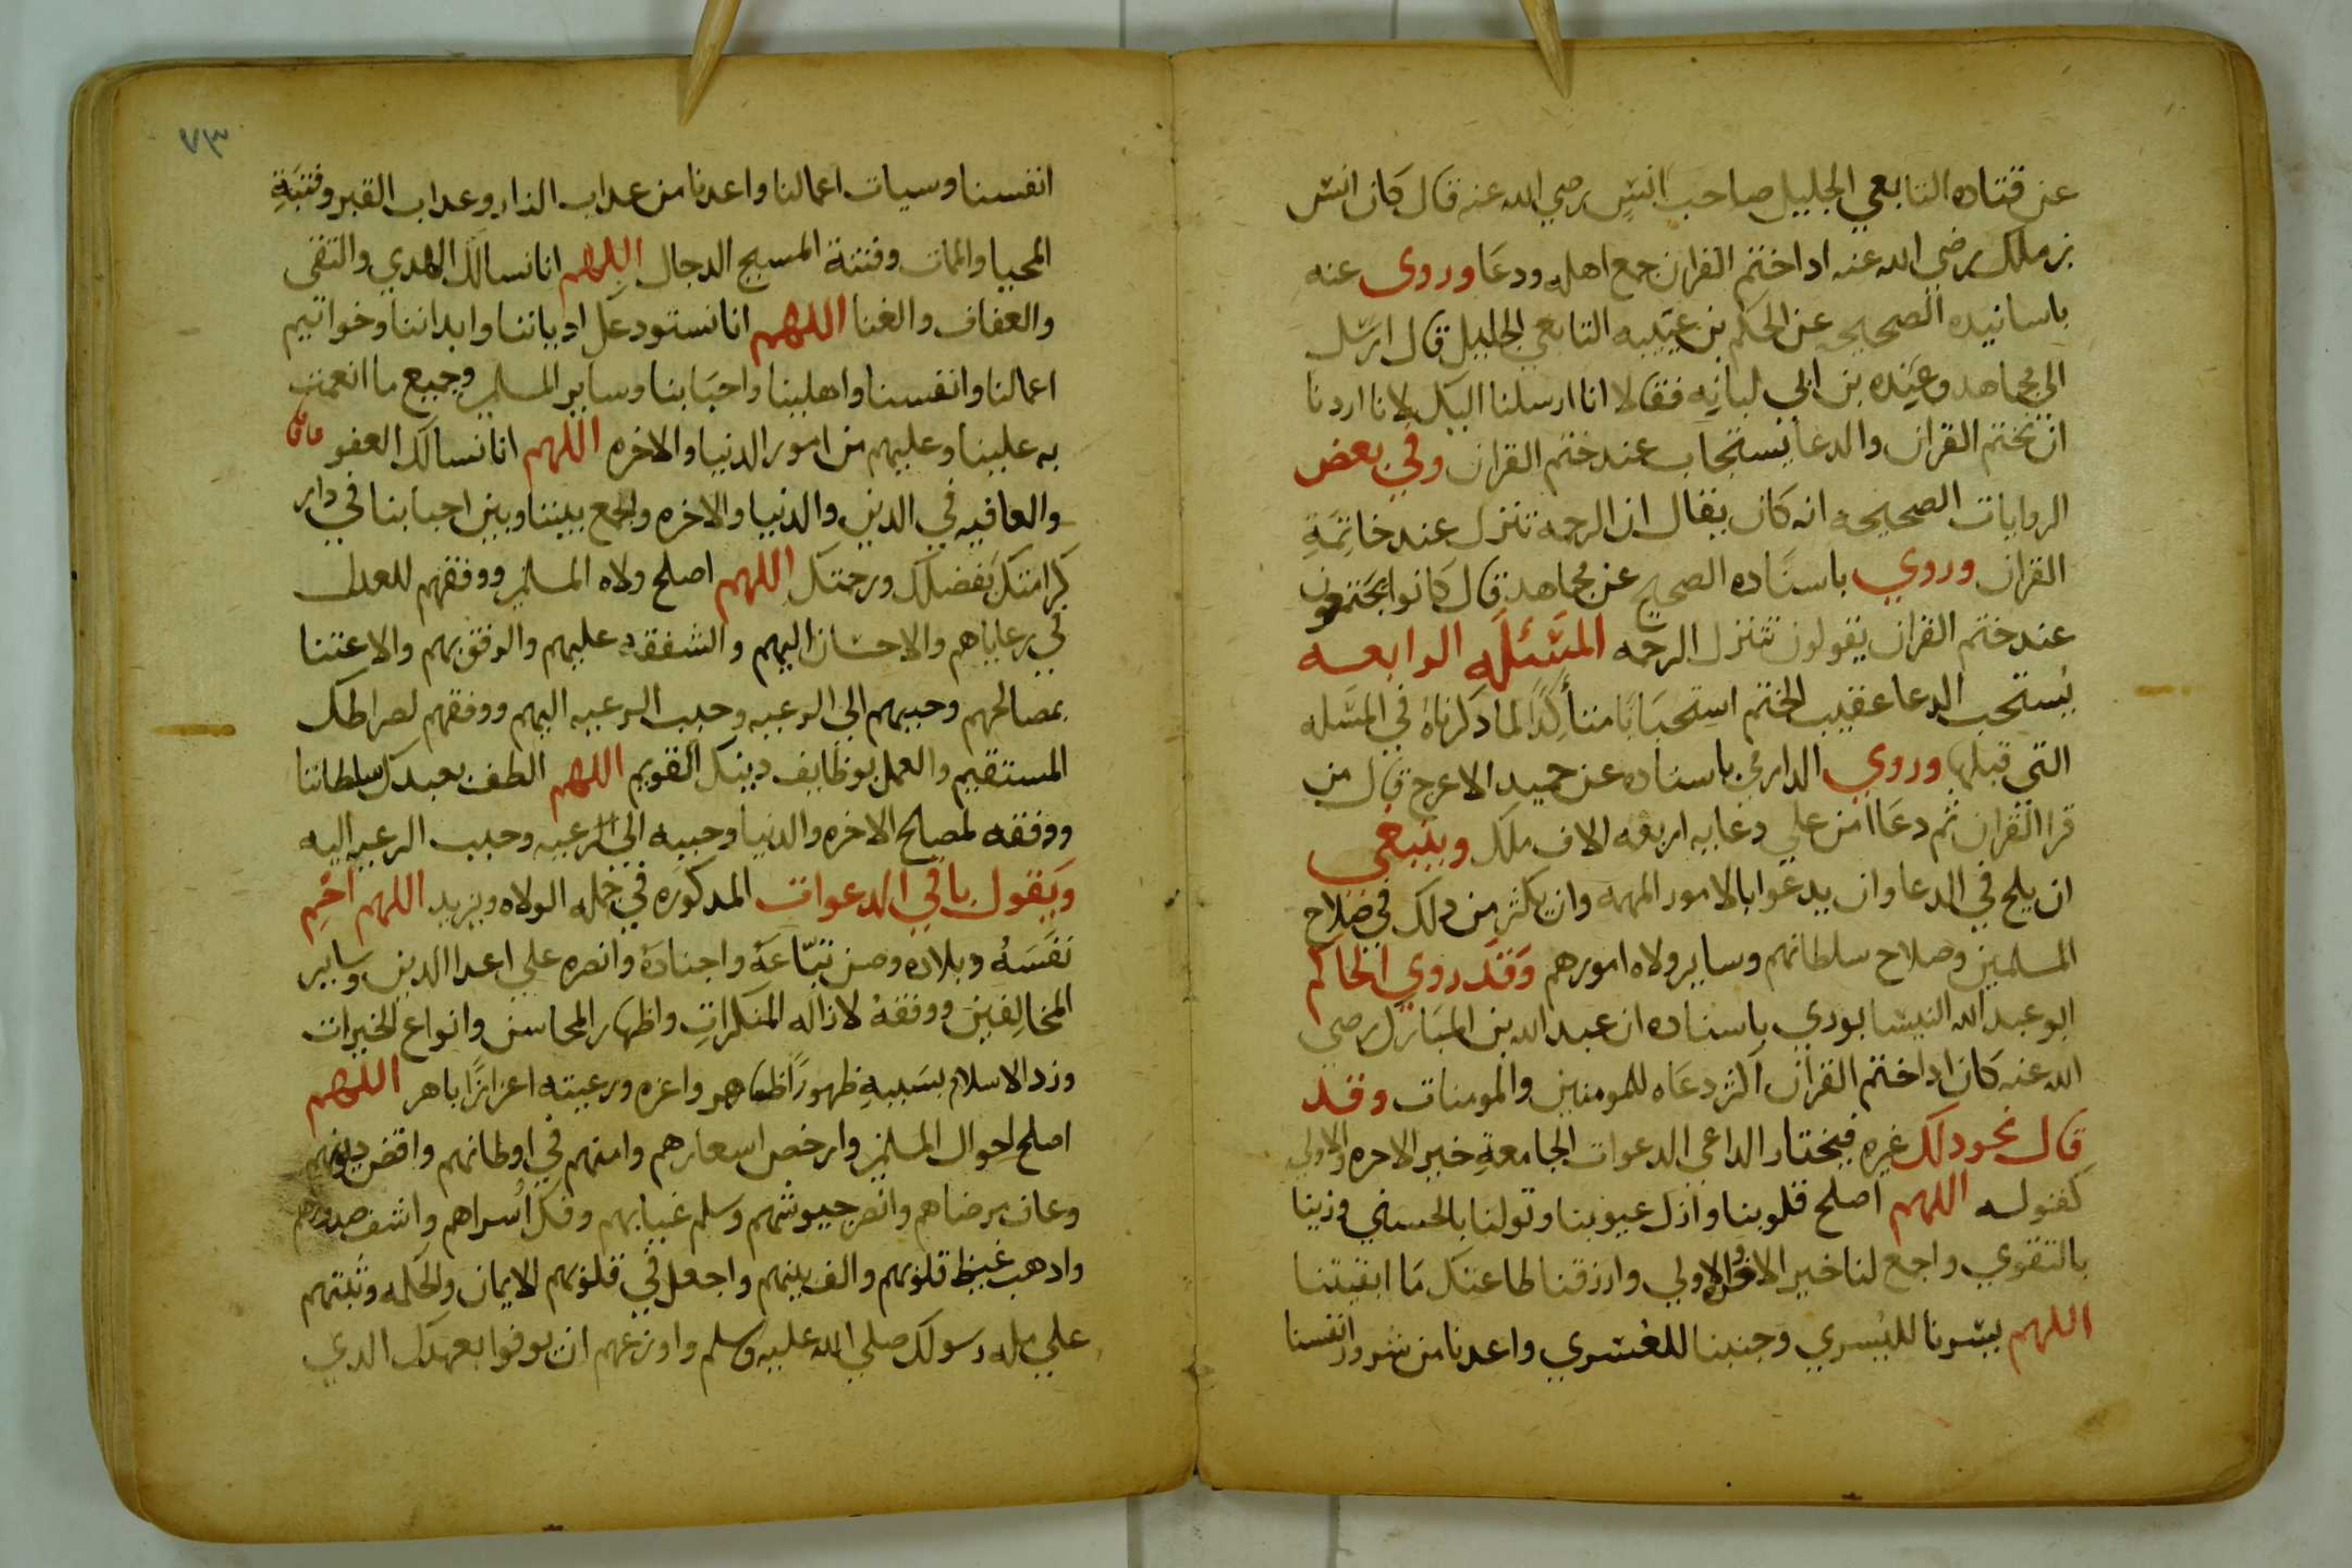 عن قتاده التابعي الجليل صاحب انس رضي الله عنه قال كان انس
بن ملك رضي الله عنه ادا ختم القران جمع اهله ودعا وروى عنه
باسانيده الصحيحه عن الحكم بن عيينه التابعي الجليل قال ارسل
الى مجاهد وعبده بن ابي لبابه فقالا انا ارسلنا اليك لانا اردنا
ان نختم القران والدعا يستجاب عند ختم القران وفي بعض
الروايات الصحيحه انه كان يقال ان الرحمه تنزل عند خاتمة
القران وروي باسناده الصحيح عن مجاهد قال كانوا يجتمعون
عند ختم القران يقولون تنزل الرحمه المسئله الرابعه
يستحب الدعا عقيب الختم استحبابا متأكدا لما دكرناه في المسله
التي قبلها وروي الدارمي باسناده عن حميد الاعرج قال من
قرا القران ثم دعا امن علي دعايه اربعه الاف ملك وينبغي
ان يلح في الدعا وان يدعوا بالامور المهمه وان يكثر من دلك في صلاح
المسلمين وصلاح سلطانهم وساير ولاه امورهم وقد روي الحاكم
ابو عبد الله النيشابوري باسناده ان عبد الله بن المبارك رضي
الله عنه كان ادا ختم القران اكثر دعاه للمومنين والمومنات وقد
قال نحو دلك غيره فيختار الداعي الدعوات الجامعة خير الاخره والاولي
كقوله اللهم اصلح قلوبنا وازل عيوبنا وتولنا بالحسني وزينا
بالتقوي واجمع لنا خير الاخره والاولي وارزقنا طاعتك ما ابقيتنا
اللهم يسرنا لليسري وجنبنا للعسري واعدنا من شرور انفسنا
٧٣
انفسنا وسيات اعمالنا واعدنا من عداب النار وعداب القبر وفتنة
المحيا والممات وفتنة المسيح الدجال اللهم انا نسالك الهدي والتقي
والعفاف والغنا اللهم انا نستودعك ادياننا وابداننا وخواتيم
اعمالنا وانفسنا واهلينا واحبابنا وساير المسلمين وجميع ما انعمت
به علينا وعليهم من امور الدنيا والاخره اللهم انا نسالك العفو
والعافيه في الدين والدنيا والاخره واجمع بيننا وبين احبابنا في دار
كرامتك بفضلك ورحمتك اللهم اصلح ولاه المسلمين ووفقهم للعدل
في رعاياهم والاحسان اليهم والشفقه عليهم والرفق بهم والاعتنا
بمصالحهم وحببهم الي الرعيه وحبب الرعيه اليهم ووفقهم لصراطك
المستقيم والعمل بوظايف دينك القويم اللهم الطف بعبدك سلطاننا
ووفقه لمصالح الاخره والدنيا وحببه الي الرعيه وحبب الرعيه اليه
ويقول باقي الدعوات المدكوره في جمله الولاه ويزيد اللهم احم
نفسه وبلاده وصن تباعه واجناده وانصره علي اعدا الدين وساير
المخالفين ووفقه لازاله المنكرات واظهار المحاسن وانواع الخيرات
وزد الاسلام بسببه ظهورا ظاهر واعزه ورعيته اعزازا باهر اللهم
اصلح احوال المسلمين وارخص اسعارهم وامنهم في اوطانهم واقض ديونهم
وعاف مرضاهم وانصر جيوشهم وسلم غيابهم وفك اسراهم واشف صدورهم
وادهب غيظ قلوبهم والف بينهم واجعل في قلوبهم الايمان والحكمه وثبتهم
علي مله رسولك صلي الله عليه وسلم واوزعهم ان يوفوا بعهدك الدي